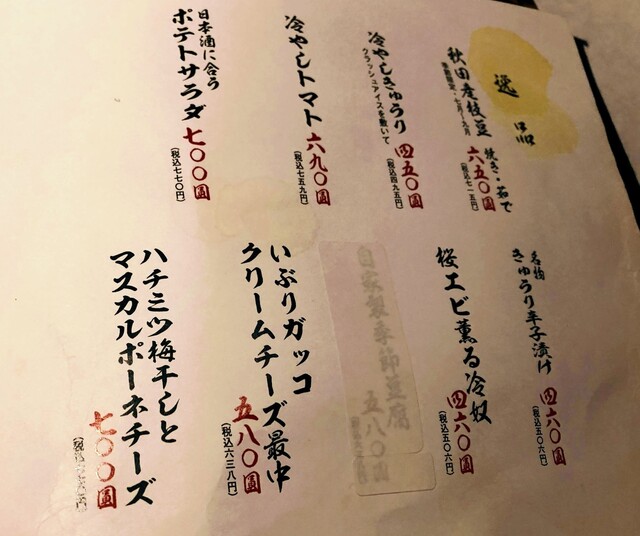 逸品
秋田産枝豆 焼き・茹で
六五〇圓
(税込七一五円)
冷やしきゅうり
クラッシュアイスを敷いて
四五〇圓
(税込四九五円)
冷やしトマト
六九〇圓
(税込七五九円)
日本酒に合う
ポテトサラダ
七〇〇圓
(税込七七〇円)
名物
きゅうり辛子漬け
四六〇圓
(税込五〇六円)
桜エビ薫る冷奴
四六〇圓
(税込五〇六円)
自家製季節豆腐
五八〇圓
いぶりガッコ
クリームチーズ最中
五八〇圓
(税込六三八円)
ハチミツ梅干しと
マスカルポーネチーズ
七〇〇圓
(税込七七〇円)